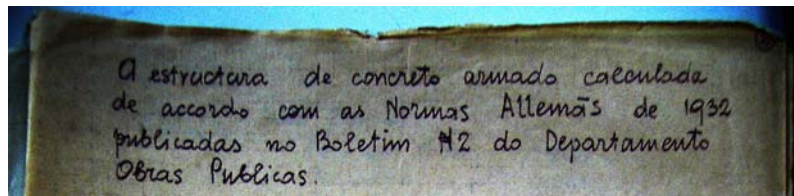 A estructura de concreto armado calculada
de accordo com as Normas Allemãs de 1932
publicadas no Boletim Nº2 do Departamento
Obras Publicas.